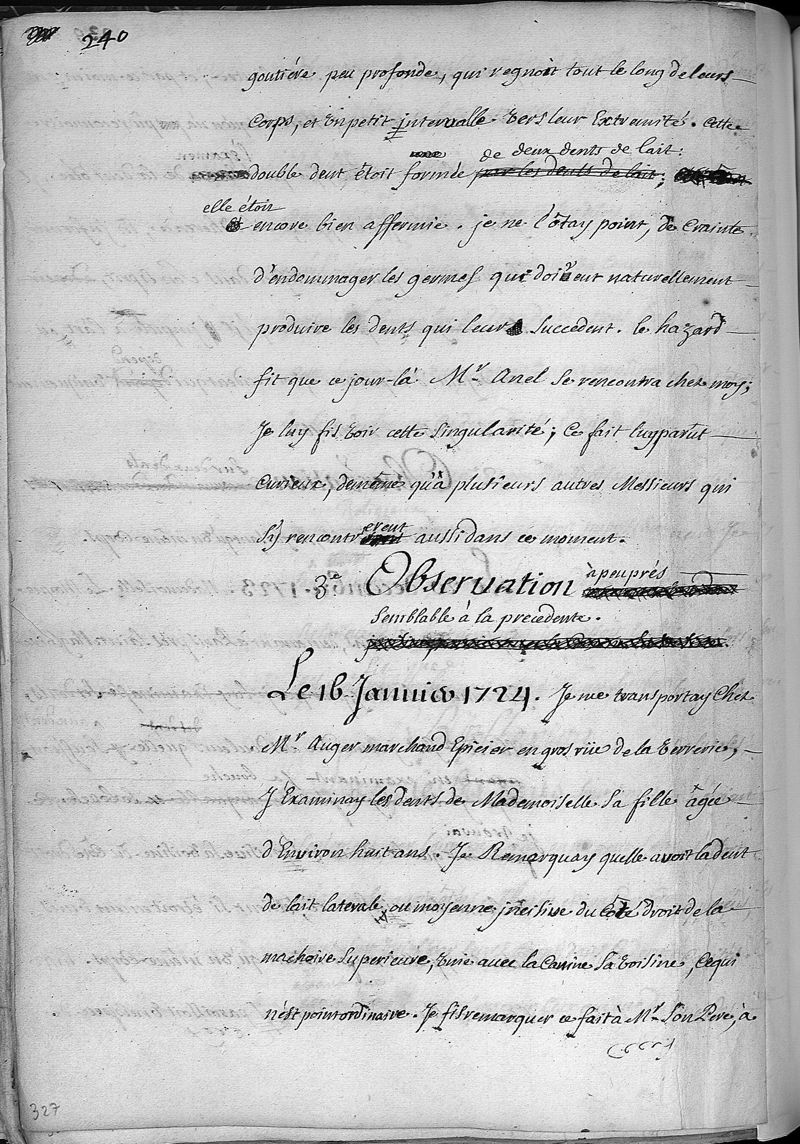 240
goutiére peu profonde, qui regnoit tout le long de leurs
Corps, et un petit intervalle vers leur Extremité. Cette
de deux dents de lait:
double dent étoit formée par les dents de lait;
elle étoit
encore bien affermie. je ne l'ôtay point, de Crainte
d'endommager les germes qui doivent naturellement
produire les dents qui leur succedent. le hazard
fit que ce jour-là Mr. Anel se rencontra chez moy;
Je luy fis voir cette singularité; ce fait luy parut
Curieux, de même qu'a plusieurs autres Messieurs qui
s'y rencontrerent aussi dans ce moment.
3e Observation àpeuprés
Semblable à la precedente.
Le 16 Janvier 1724. Je me transportay Chez
Mr Auger marchand Epicier en gros rüe de la Verrerie,
J'Examinay les dents de Mademoiselle sa fille âgée
d'Environ huit ans. Je Remarquay quelle avoit la dent
de lait laterale, ou moyenne incisive du Coté droit de la
machoire Superieure, Unie avec la Canine sa Voisine, Ce qui
n'est point ordinaire. Je fis remarquer ce fait à Mr. son Pere, à
327